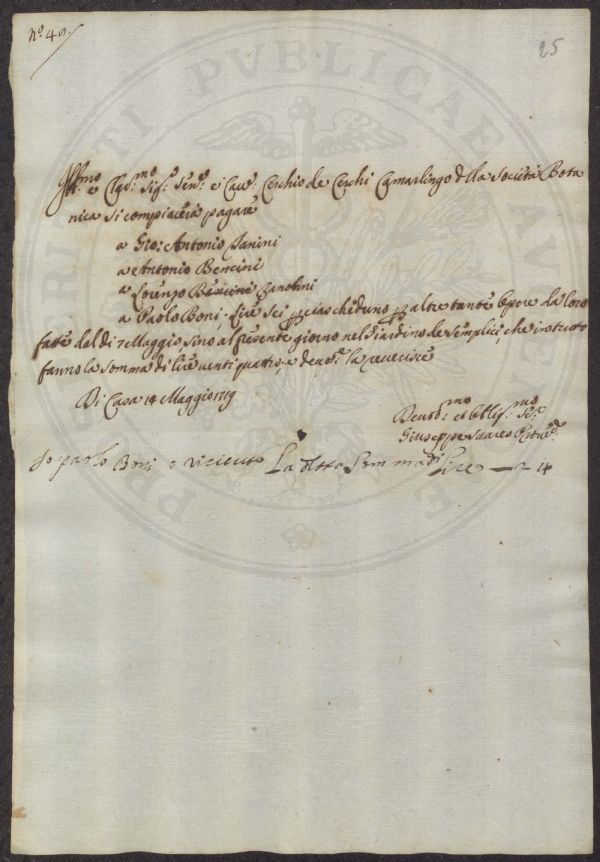 N.º 48
25
Ill.mo e Clar.mo Sig.r Sen.r e Cav.r Cerchio de Cerchi Camarlingo della Società Bota
nica si compiacerà pagare
a Gio: Antonio Janini
a Antonio Bencini
a Lorenzo Zanobini
a Paolo Boni, Lire sei per ciascheduno per altre tante Opere da loro
fatte dal dì 7 Maggio sino al presente giorno nel Giardino de Semplici, che in tutto
fanno la somma di lire venti quattro, e la reverisce
Di Casa 14 Maggio
Giuseppe
Io paolo Boni o riceuto La detta Somma di Lire — 24